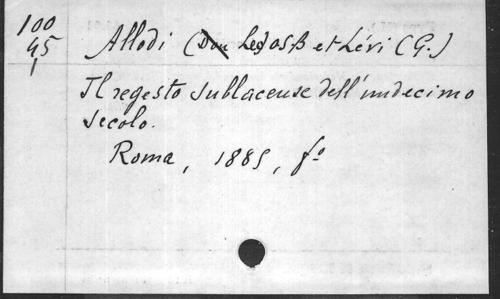 100
45
1
Allodi (Don Leo) OSB et Lévi (G.)
Il regesto sublacense dell'undecimo
secolo.
Roma, 1885, fº